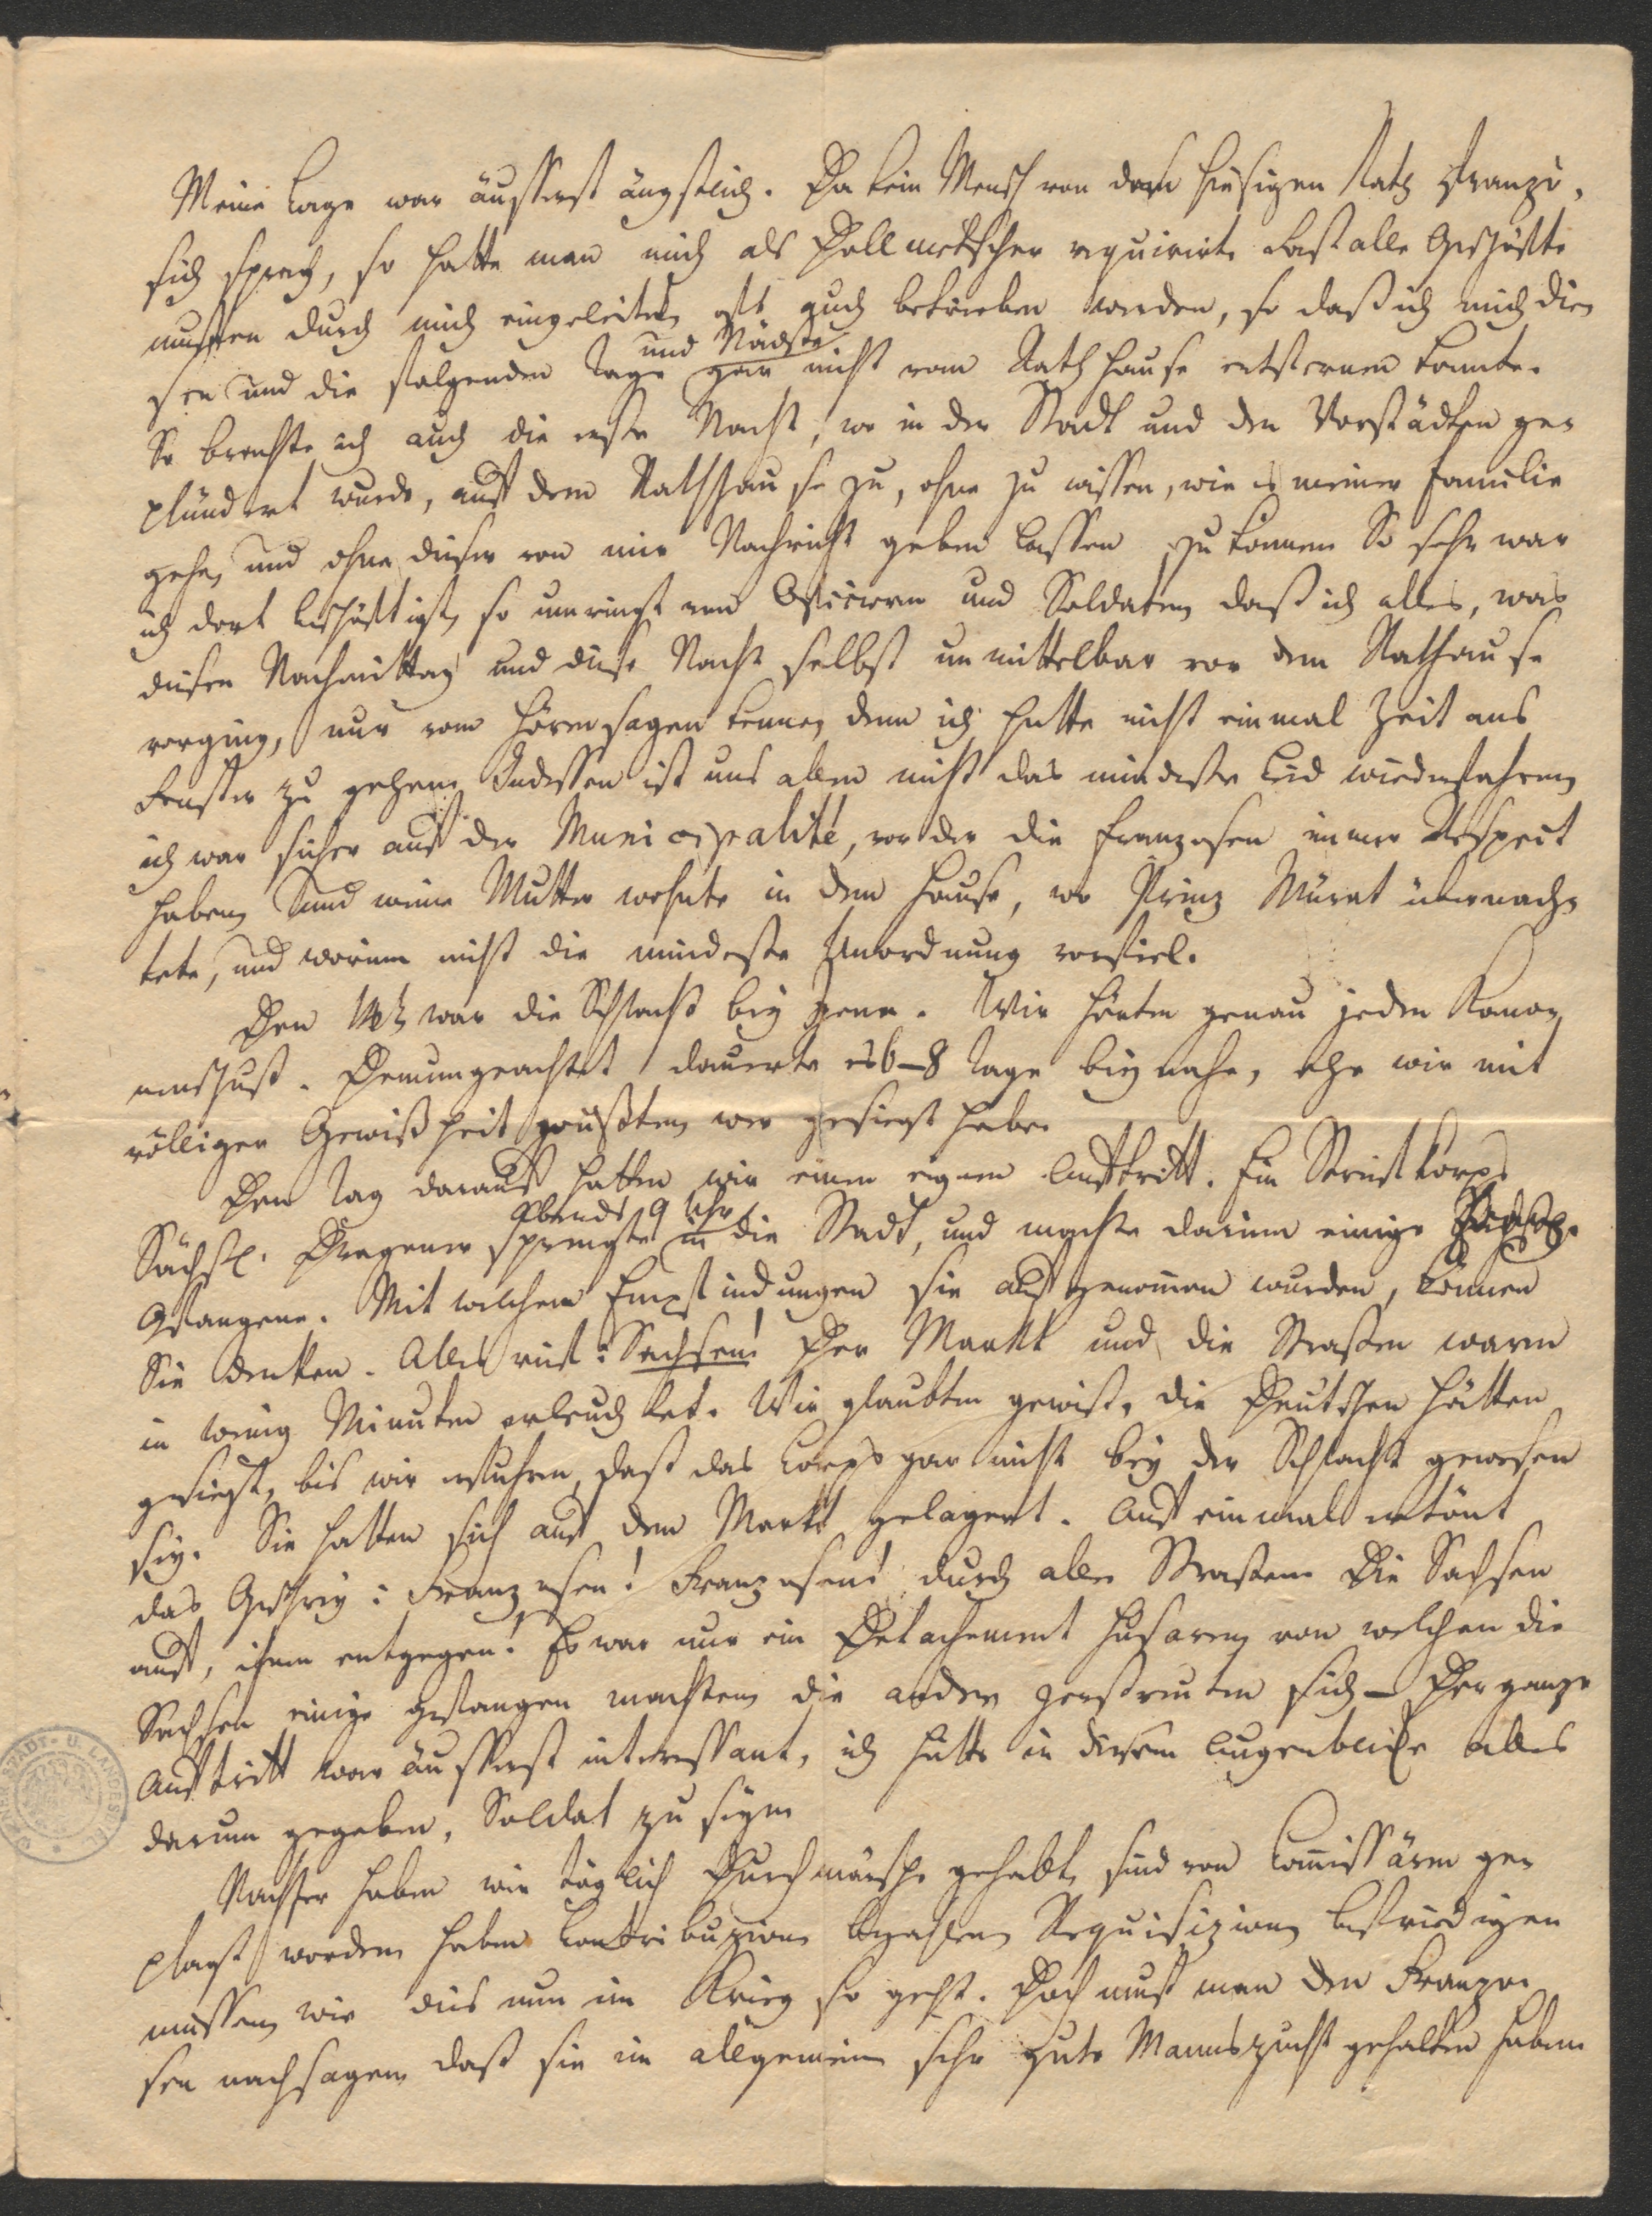 Meine Lage war äusserst ängstlich. Da kein Mensch von dem hiesigen Rath Franzö-
sisch sprach, so hatte man mich als Dollmetscher requirirt. Fast alle Geschäfte
mussten durch mich eingeleitet, oft auch betrieben werden, so daß ich mich die-
und Nächte
sen und die folgenden Tage gar nicht vom Rathhause entfernen konnte.
So brachte ich auch die erste Nacht, wo in der Stadt und den Vorstädten ge-
plündert wurde, auf dem Rathhause zu, ohne zu wissen, wie es meiner Familie
gehe, und ohne dieser von mir Nachricht geben lassen zu können. So sehr war
ich dort beschäftigt, so umringt von Officieren und Soldaten, daß ich alles, was
diesen Nachmittag und diese Nacht selbst unmittelbar vor dem Rathhause
vorging, nur vom Hörensagen kenne, denn ich hatte nicht einmal Zeit ans
Fenster zu gehen. Indessen ist uns allen nicht das mindeste Leid wiederfahren,
ich war sicher auf der Municipalité, vor der die Franzosen immer Respect
haben, und meine Mutter wohnte in dem Hause, wo Prinz Murat übernach-
tete, und worinn nicht die mindeste Unordnung vorfiel.
Den 14t. war die Schlacht bey Jena. Wir hörten genau jeden Kanon-
enschuß. Demungeachtet dauerte es 6–8 Tage beynahe, ehe wir mit
völliger Gewißheit wußten, wer gesiegt habe.
Den Tag darauf hatten wir einen eignen Auftritt. Ein Streifkorps
Abends 9 Uhr
Sächs. Dragoner sprengte in die Stadt, und machte darinn einige
Gefangene. Mit welchen Empfindungen sie aufgenommen wurden, können
Sie denken. Alles rief: Sachsen! Der Markt und die Straßen waren
in wenig Minuten erleuchtet. Wir glaubten gewiß, die Deutschen hätten
gesiegt, bis wir erfuhren, daß das Corps gar nicht bey der Schlacht gewesen
sey. Sie hatten sich auf dem Markt gelagert. Auf einmal ertönt
das Geschrey: Franzosen! Franzosen! durch alle Straßen. Die Sachsen
auf, ihnen entgegen! Es war nur ein Detachement Husaren, von welchen die
Sachsen einige gefangen machten, die andern zerstreuten sich – Der ganze
Auftritt war äusserst interessant, ich hätte in diesem Augenblicke alles
darum gegeben, Soldat zu seyn.
Nachher haben wir täglich Durchmärsche gehabt, sind von Commissären ge-
plagt worden, haben Contribuzion bezahlen, Requisizionen befriedigen
müssen, wie dies nun im Krieg so geht. Doch muß man den Franzo-
sen nachsagen, daß sie im allgemeinen sehr gute Mannszucht gehalten haben.